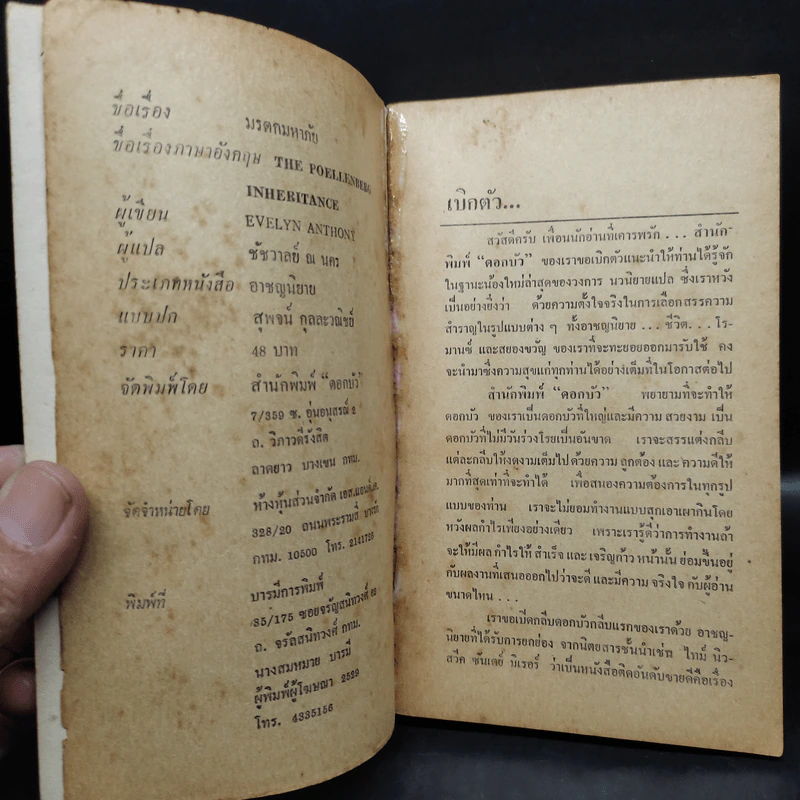 ชื่อเรื่อง มรดกมหาภัย
ชื่อเรื่องภาษาอังกฤษ THE POELLENBERG
INHERITANCE
ผู้เขียน EVELYN ANTHONY
ผู้แปล ชัชวาลย์ ณ นคร
ประเภทหนังสือ อาชญนิยาย
แบบปก สุพจน์ กุลละวณิชย์
ราคา 48 บาท
จัดพิมพ์โดย สำนักพิมพ์ “ดอกบัว”
7/359 ซ. อุ่นอนุสรณ์ 2
ถ. วิภาวดีรังสิต
ลาดยาว บางเขน กทม.
จัดจำหน่ายโดย ห้างหุ้นส่วนจำกัด
328/20 ถนนพระรามสี่
กทม. 10500 โทร.
พิมพ์ที่ บารมีการพิมพ์
35/175 ซอยจรัญสนิทวงศ์
ถ. จรัลสนิทวงศ์ กทม.
นางสมหมาย บารมี
ผู้พิมพ์ผู้โฆษณา 2529
โทร. 4335156
เบิกตัว...
สวัสดีครับ เพื่อนนักอ่านที่เคารพรัก . . . สำนัก-
พิมพ์ “ดอกบัว” ของเราขอเบิกตัวแนะนำให้ท่านได้รู้จัก
ในฐานะน้องใหม่ล่าสุดของวงการ นวนิยายแปล ซึ่งเราหวัง
เป็นอย่างยิ่งว่า ด้วยความตั้งใจจริงในการเลือกสรรความ
สำราญในรูปแบบต่าง ๆ ทั้งอาชญนิยาย . . . ชีวิต. . . โร-
มานซ์ และสยองขวัญ ของเราที่จะทะยอยออกมารับใช้ คง
จะนำมาซึ่งความสุขแก่ทุกท่านได้อย่างเต็มที่ในโอกาสต่อไป
สำนักพิมพ์ “ดอกบัว” พยายามที่จะทำให้
ดอกบัว ของเราเป็นดอกบัวที่ใหญ่และมีความ สวยงาม เป็น
ดอกบัวที่ไม่มีวันร่วงโรยเป็นอันขาด เราจะสรรแต่งกลีบ
แต่ละกลีบให้งดงามเต็มไปด้วยความ ถูกต้อง และ ความดีให้
มากที่สุดเท่าที่จะทำได้ เพื่อสนองความต้องการในทุกรูป
แบบของท่าน เราจะไม่ยอมทำงานแบบสุกเอาเผากินโดย
หวังผลกำไรเพียงอย่างเดียว เพราะเรารู้ดีว่าการทำงานถ้า
จะให้มีผล กำไรให้ สำเร็จ และ เจริญก้าว หน้านั้น ย่อมขึ้นอยู่
กับผลงานที่เสนอออกไปว่าจะดี และมีความ จริงใจ กับผู้อ่าน
ขนาดไหน . . .
เราขอเบิดกลีบดอกบัวกลีบแรกของเราด้วย อาชญ-
นิยายที่ได้รับการยกย่อง จากนิตยสารชั้นนำเช่น ไทม์ นิว-
สวีค ซันเดย์ มิเรอร์ ว่าเป็นหนังสือติดอันดับขายดีคือเรื่อง